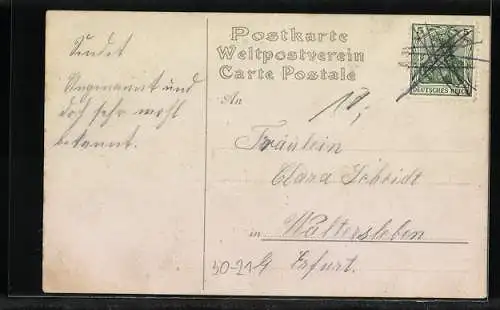 Postkarte
Weltpostverein
Carte Postale
5 5
DEUTSCHES REICH
Sendet
und
doch sehr wohl
bekannt.
An
Fräulein
Clara Scheidt
in Waltersleben
30-21 Erfurt.